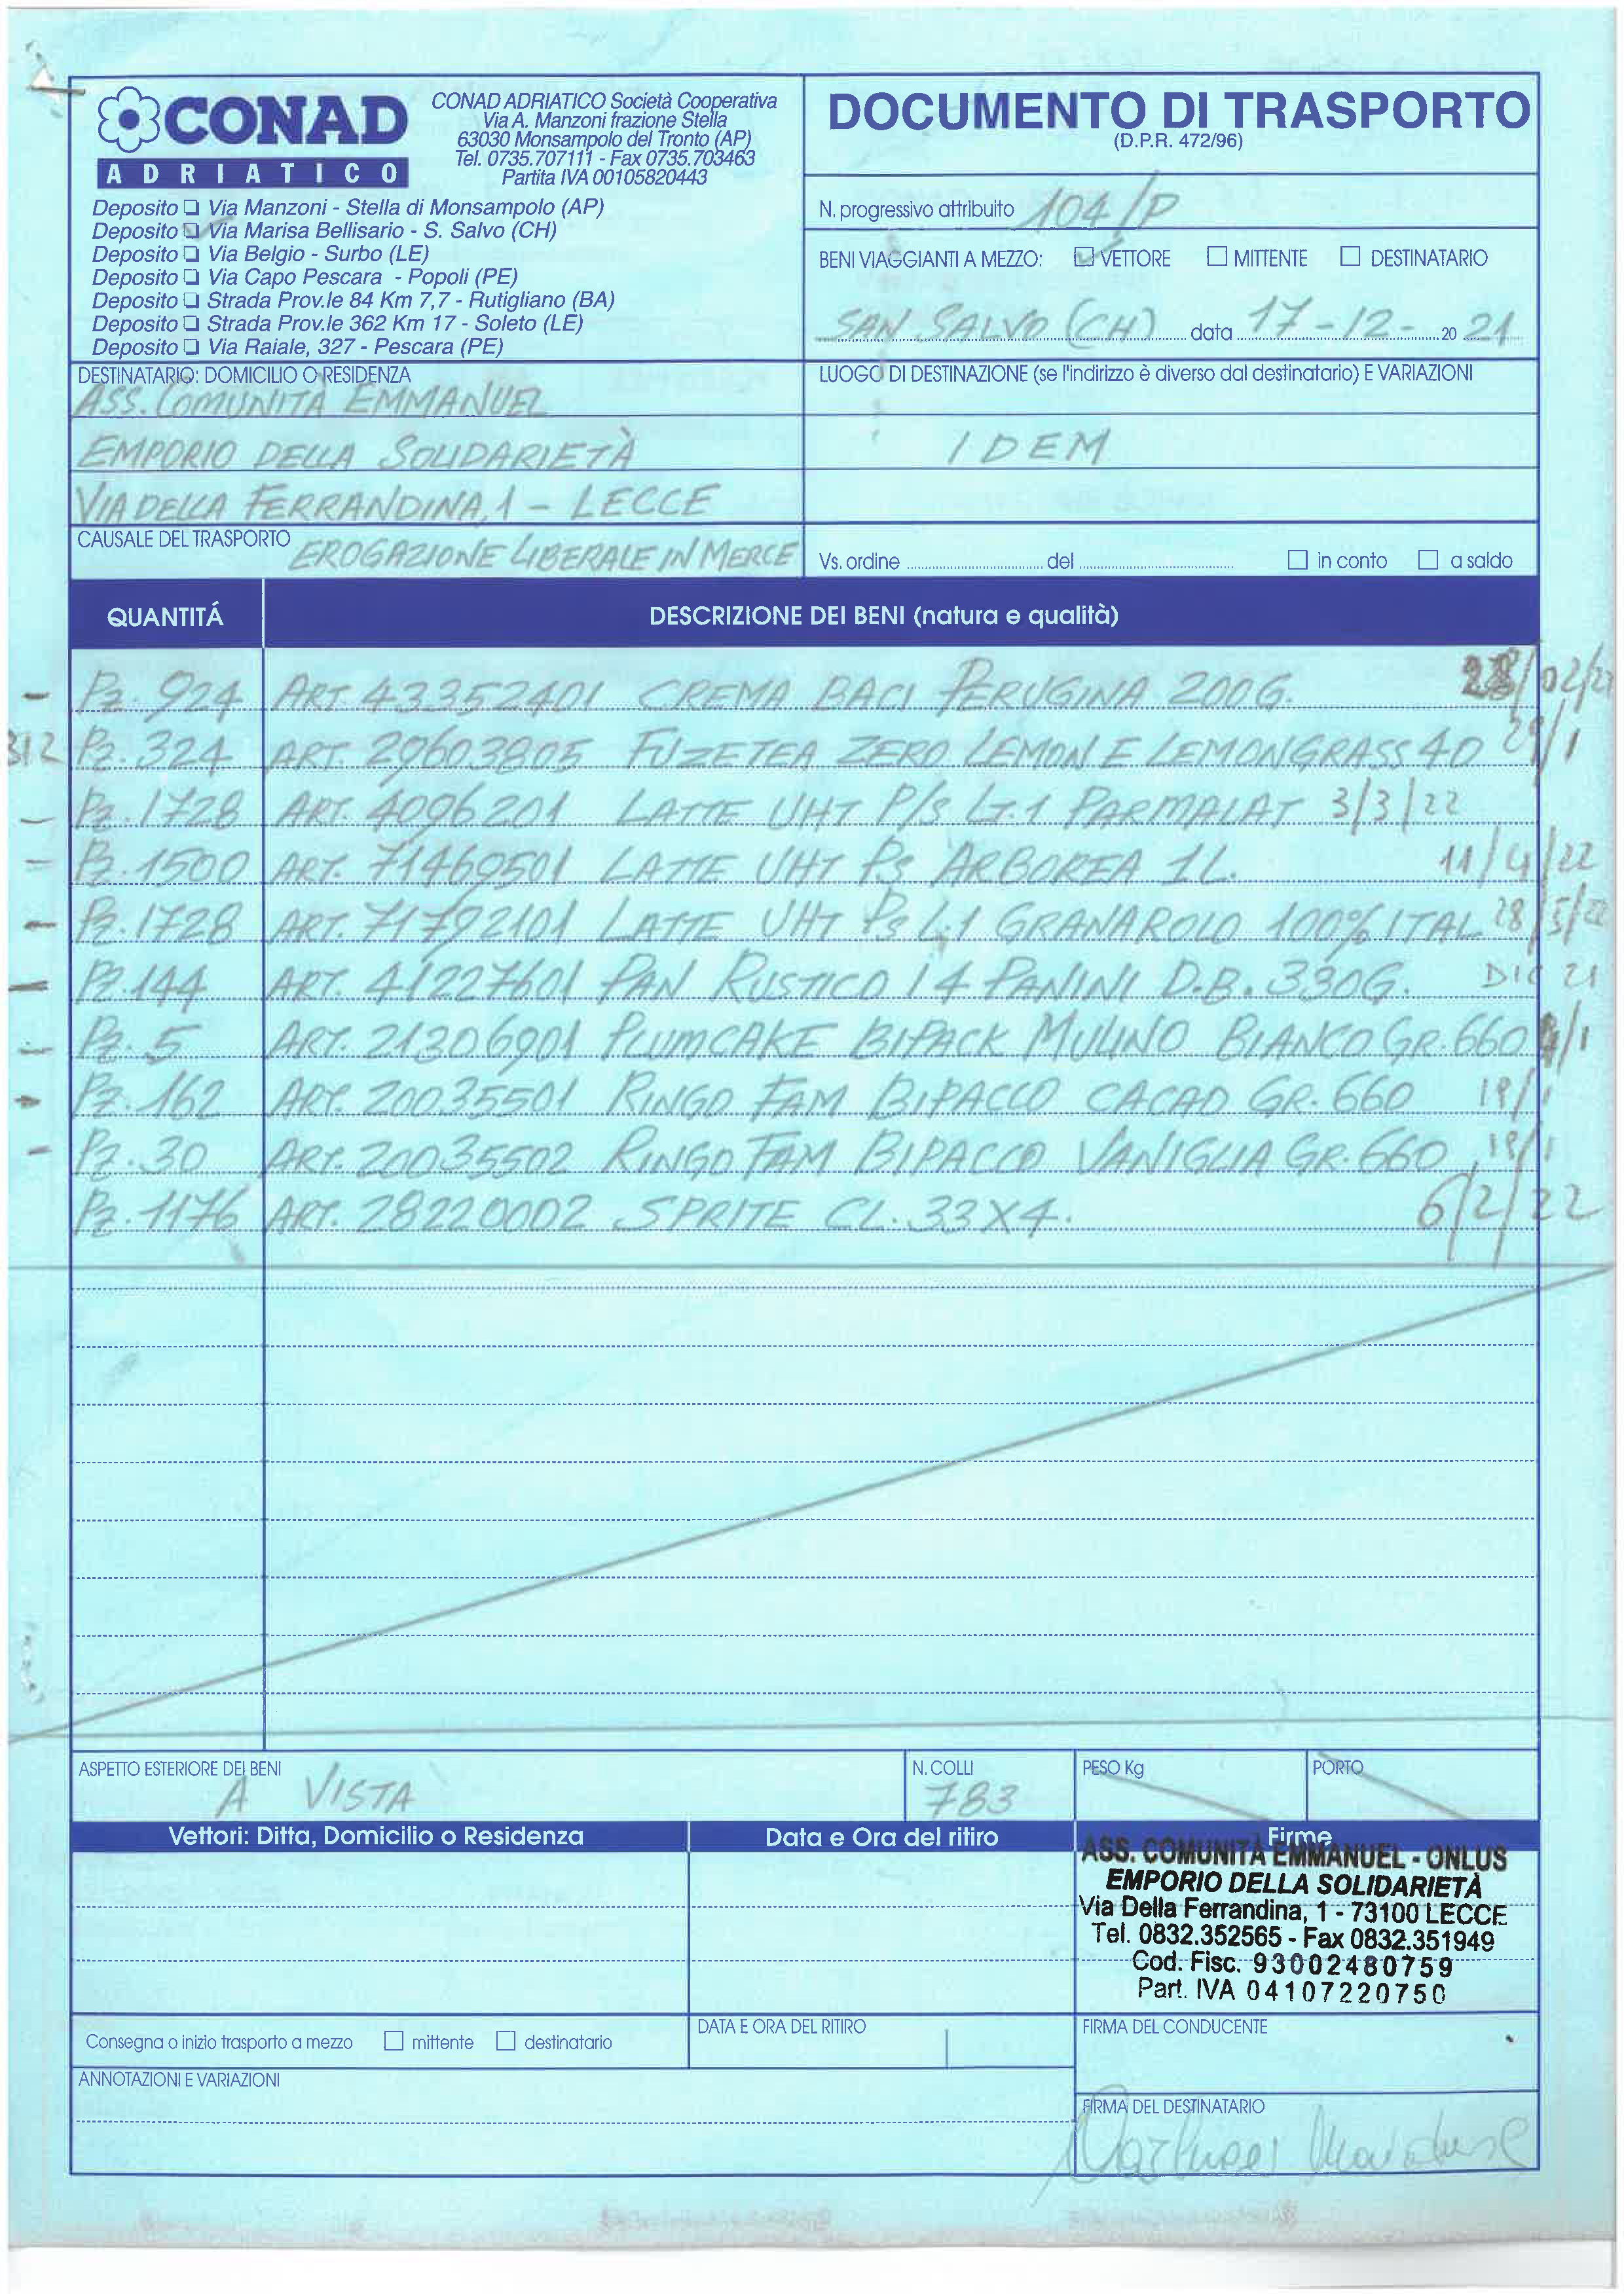 CONAD
ADRIATICO
CONAD ADRIATICO Società Cooperativa
Via A. Manzoni frazione Stella
63030 Monsampolo del Tronto (AP)
Tel. 0735.707111 - Fax 0735.703463
Partita IVA 00105820443
Deposito ❑ Via Manzoni - Stella di Monsampolo (AP)
Deposito ❑ Via Marisa Bellisario - S. Salvo (CH)
Deposito ❑ Via Belgio - Surbo (LE)
Deposito ❑ Via Capo Pescara - Popoli (PE)
Deposito ❑ Strada Prov.le 84 Km 7,7 - Rutigliano (BA)
Deposito ❑ Strada Prov.le 362 Km 17 - Soleto (LE)
Deposito ❑ Via Raiale, 327 - Pescara (PE)
DOCUMENTO DI TRASPORTO
(D.P.R. 472/96)
N. progressivo attribuito 104/P
BENI VIAGGIANTI A MEZZO: ☑ VETTORE ☐ MITTENTE ☐ DESTINATARIO
SAN SALVO (CH) data 17-12- 20 21
DESTINATARIO: DOMICILIO O RESIDENZA
ASS. COMUNITÀ EMMANUEL
EMPORIO DELLA SOLIDARIETÀ
VIA DELLA FERRANDINA, 1 - LECCE
LUOGO DI DESTINAZIONE (se l'indirizzo è diverso dal destinatario) E VARIAZIONI
IDEM
CAUSALE DEL TRASPORTO EROGAZIONE LIBERALE IN MERCE
Vs. ordine del ☐ in conto ☐ a saldo
QUANTITÁ DESCRIZIONE DEI BENI (natura e qualità)
Pz. 924 ART. 43352401 CREMA BACI PERUGINA 200G. 28/02/22
312 Pz. 324 ART. 29603805 FUZETEA ZERO LEMON E LEMONGRASS 40
Pz. 1728 ART. 4096201 LATTE UHT P/S LT.1 PARMALAT 3/3/22
Pz. 1500 ART. 71469501 LATTE UHT PS ARBOREA 1L. 11/4/22
Pz. 1728 ART. 71792101 LATTE UHT PS L.1 GRANAROLO 100% ITAL. 28/5/22
Pz. 144 ART. 41227601 PAN RUSTICO 14 PANINI D.B. 330G. DIC 21
Pz. 5 ART. 21306901 PLUMCAKE BIPACK MULINO BIANCO GR. 660
Pz. 162 ART. 20035501 RINGO FAM BIPACCO CACAO GR. 660 19/1
Pz. 30 ART. 20035502 RINGO FAM BIPACCO VANIGLIA GR. 660 19/1
Pz. 1176 ART. 28220002 SPRITE CL. 33X4. 6/2/22
ASPETTO ESTERIORE DEI BENI
A VISTA
N. COLLI
783
PESO Kg
PORTO
Vettori: Ditta, Domicilio o Residenza Data e Ora del ritiro Firme
ASS. COMUNITÀ EMMANUEL - ONLUS
EMPORIO DELLA SOLIDARIETÀ
Via Della Ferrandina, 1 - 73100 LECCE
Tel. 0832.352565 - Fax 0832.351949
Cod. Fisc. 93002480759
Part. IVA 04107220750
Consegna o inizio trasporto a mezzo ☐ mittente ☐ destinatario
DATA E ORA DEL RITIRO
FIRMA DEL CONDUCENTE
ANNOTAZIONI E VARIAZIONI
FIRMA DEL DESTINATARIO